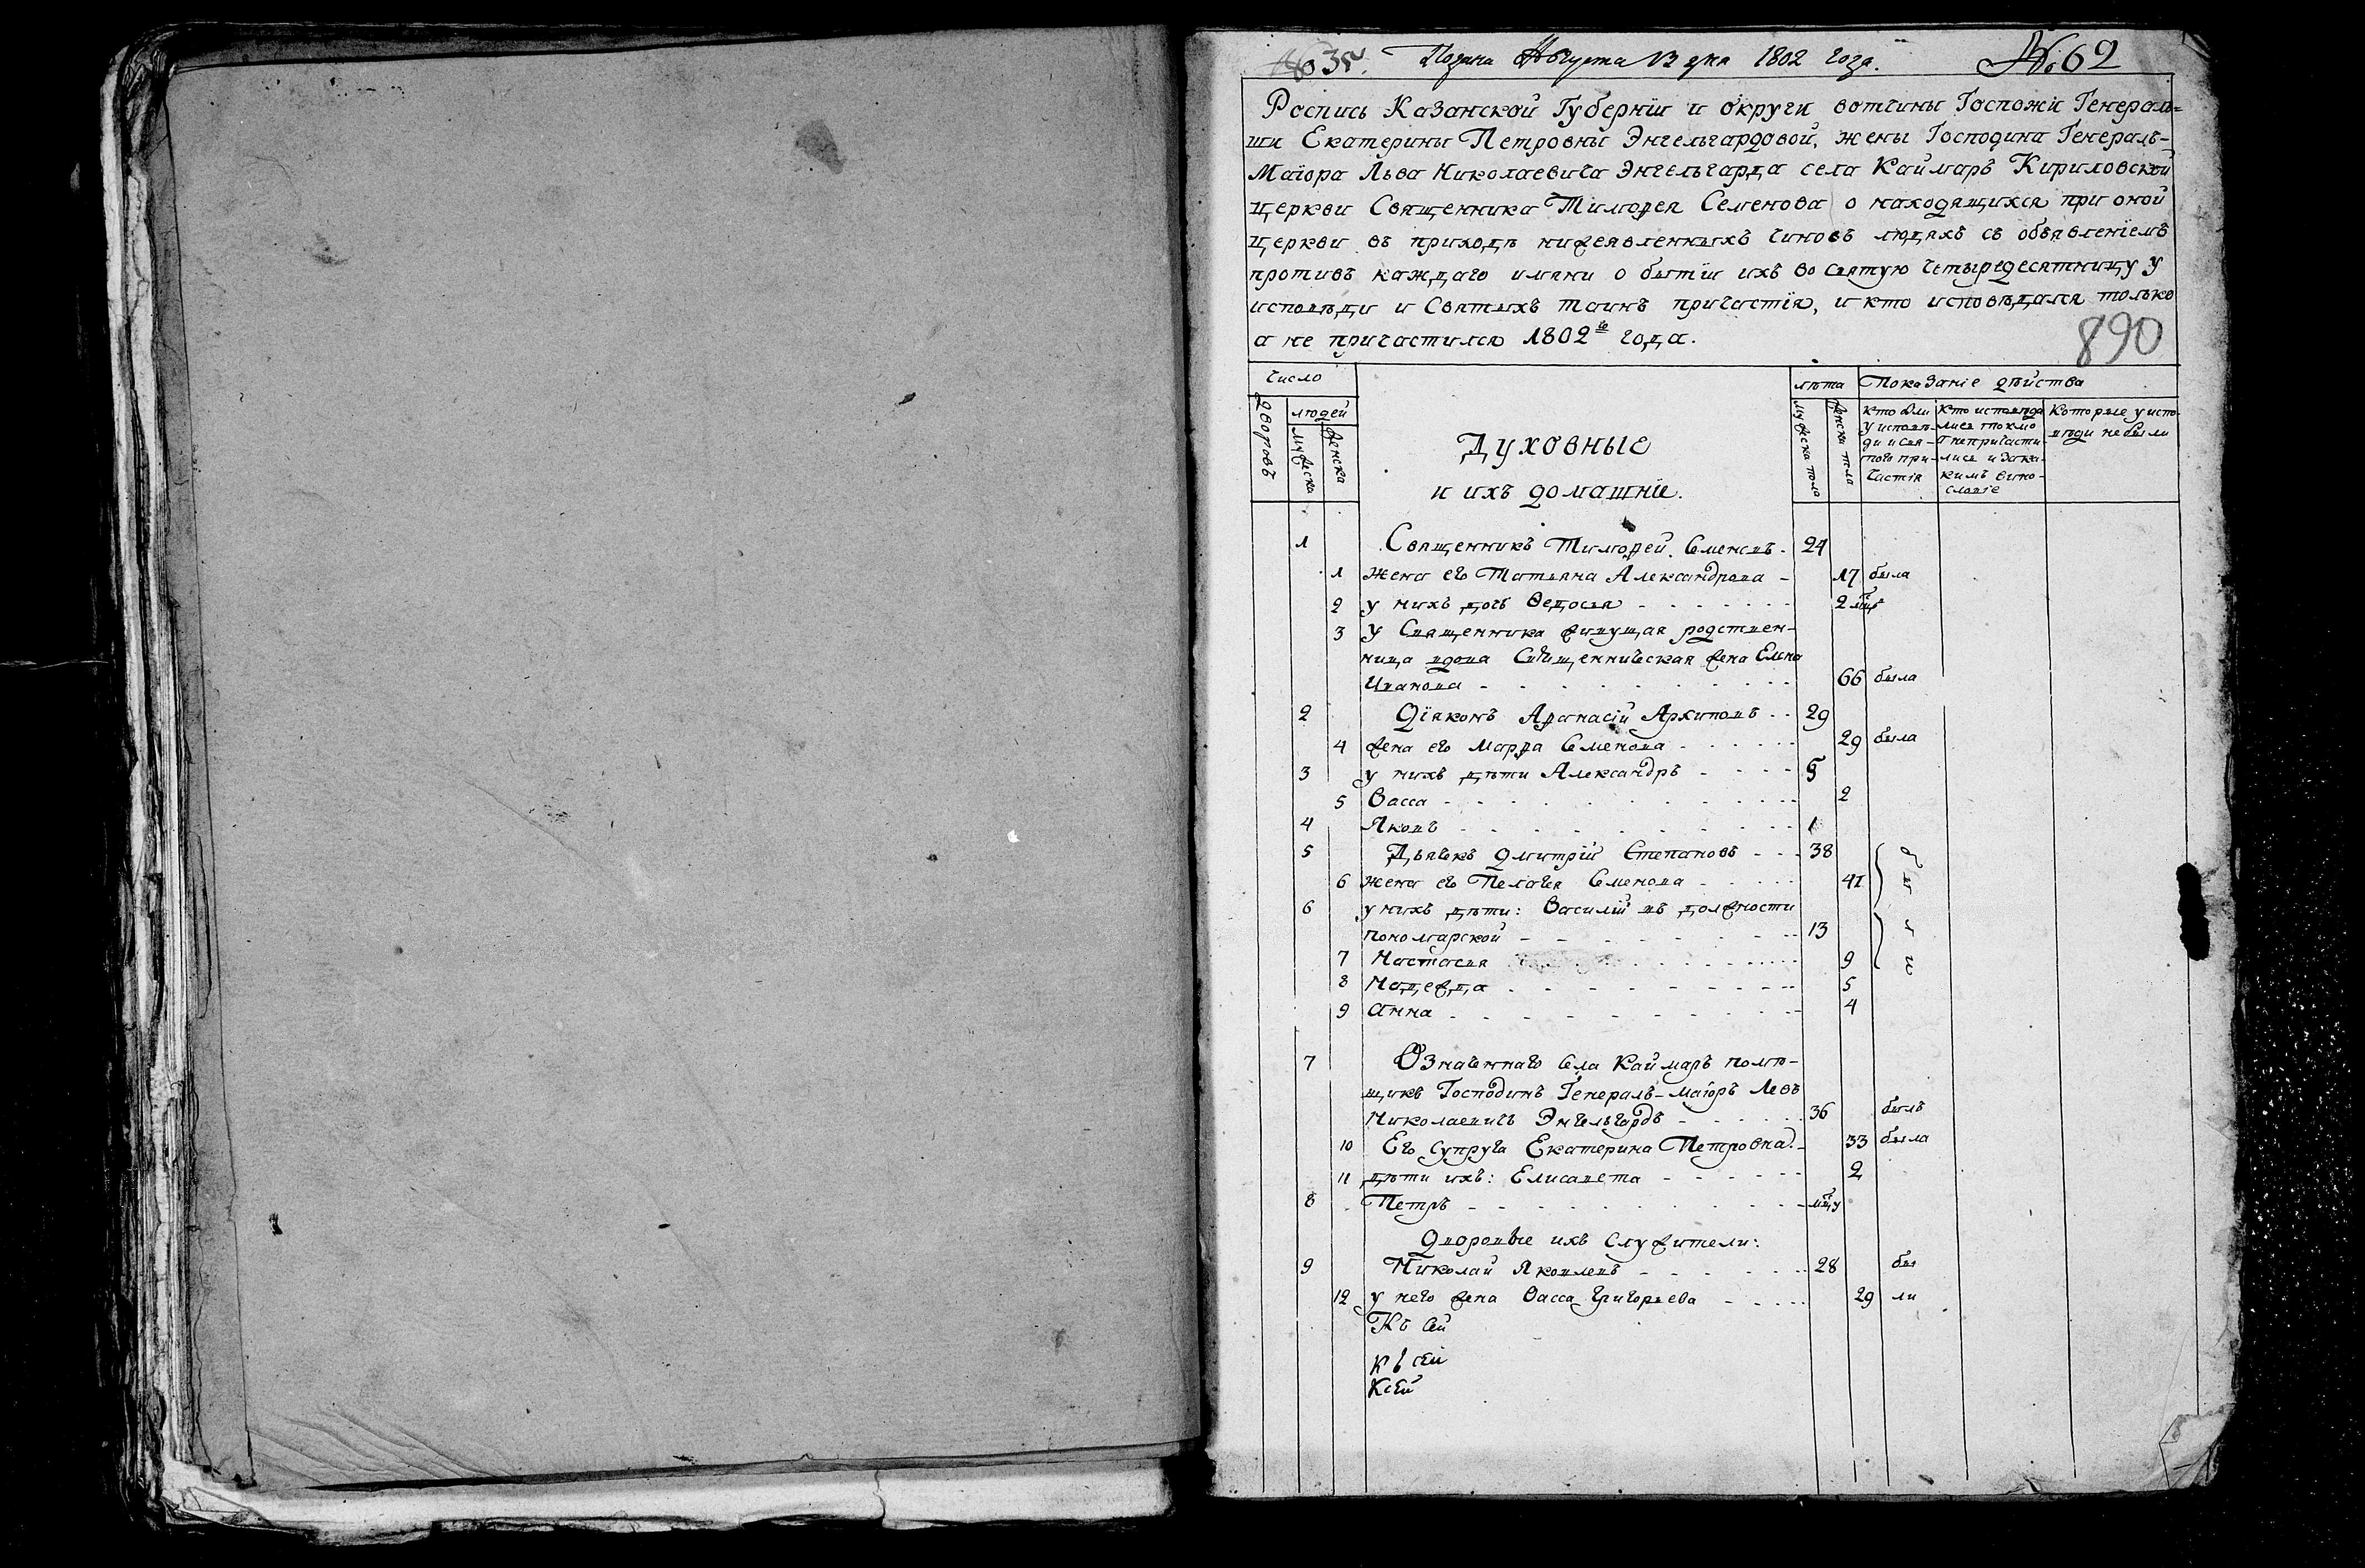 Подана Августа 13 дня 1802 года. № 62
Роспись Казанской Губерніи и округи вотчины Госпожи Генераль=
ши Екатерины Петровны Энгельгардовой, жены Господина Генералъ-
Маіора Льва Николаевича Энгельгарда села Каймаръ Кириловской
церкви Священника Тимофея Семенова о находящихся при оной
церкви въ приходѣ нижеявленныхъ чиновъ людяхъ съ объявленіемъ
противъ каждаго имяни о бытіи ихъ во святую четыредесятницу у
исповѣди и Святыхъ таинъ причастія, и кто исповѣдался только
а не причастился 1802го года.
890
Число
Дворовъ
людей
мужеска
женска
Духовные
и ихъ домашніе.
лѣта
мужеска пола
женска пола
Показаніе дѣйства
кто были
у исповѣ-
ди и свя-
того при-
частія
кто исповѣда
лися токмо
а непричасти-
лися и зака-
кимъ вино-
словіе
Которые у испо-
вѣди не были
1 Священникъ Тимофей Семеновъ - 24
1 жена его Татьяна Александрова - 17 была
2 у нихъ дочь Ѳедосья - 2 мцѣ
3 у Священника живущая родствен-
ница вдова Священническая жена Елена
Иванова - 66 была
2 Діяконъ Афанасій Архиповъ - 29
4 жена его Марфа Семенова - 29 была
3 у нихъ дѣти Александръ - 5
5 Васса - 2
4 Яковъ - 1
5 Дьячекъ Дмитрій Степановъ - 38
6 жена его Пелагея Семенова - 41
6 у нихъ дѣти: Василій въ должности
пономарской - 13
7 Настасья - 9
8 Надежда - 5
9 Анна - 4
были
7 Означеннаго села Каймаръ помѣ-
щикъ Господинъ Генералъ-маіоръ Левъ
Николаевичъ Энгельгардъ - 36 былъ
10 Его супруга Екатерина Петровна - 33 была
11 дѣти ихъ: Елисавета - 2
8 Петръ - мцу
Дворовые ихъ служители:
9 Николай Яковлевъ - 28 бы
12 у него жена Васса Григорьева - 29 ли
Къ сей
къ сей
Ксей